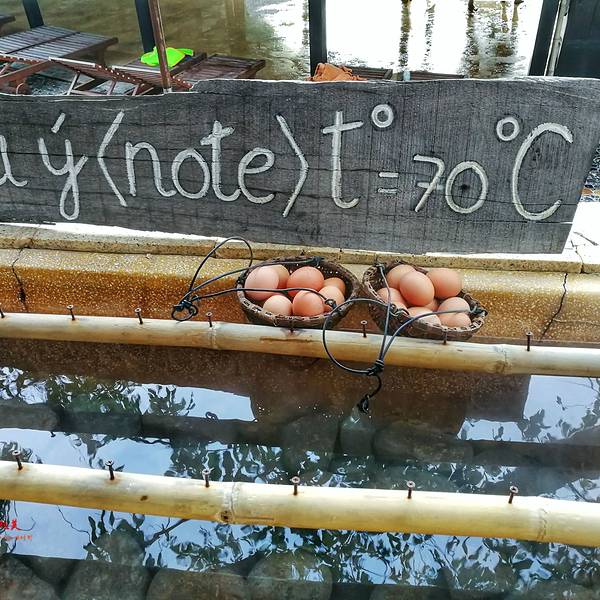 ý (note) t° = 70°C